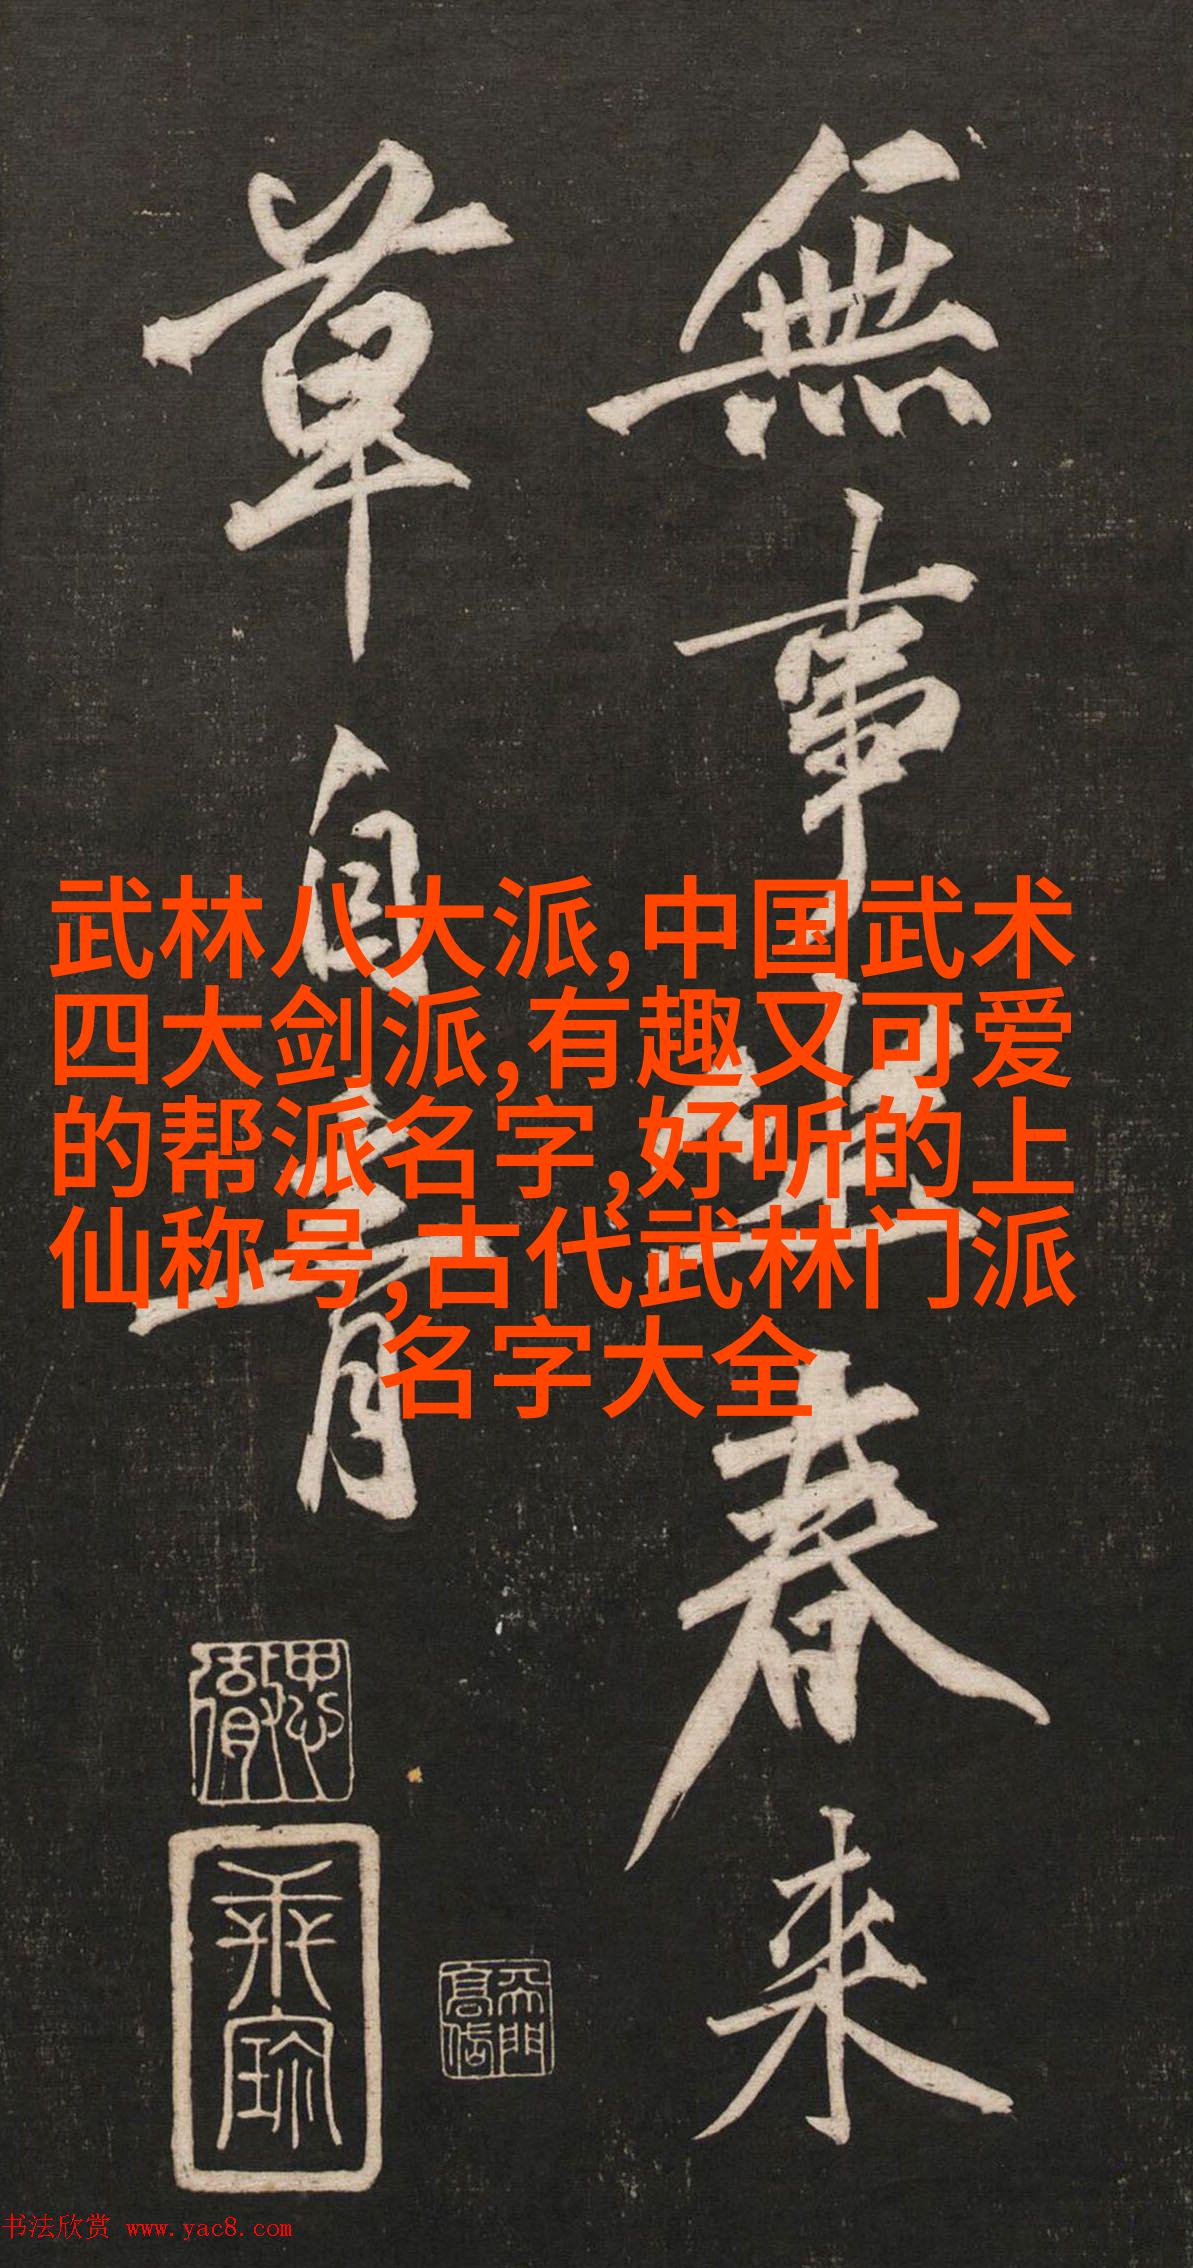 無事坐春来
草自青
武林八大派,中国武术
四大剑派,有趣又可爱
的帮派名字,好听的上
仙称号,古代武林门派
名字大全
书法欣赏 www.yac8.com